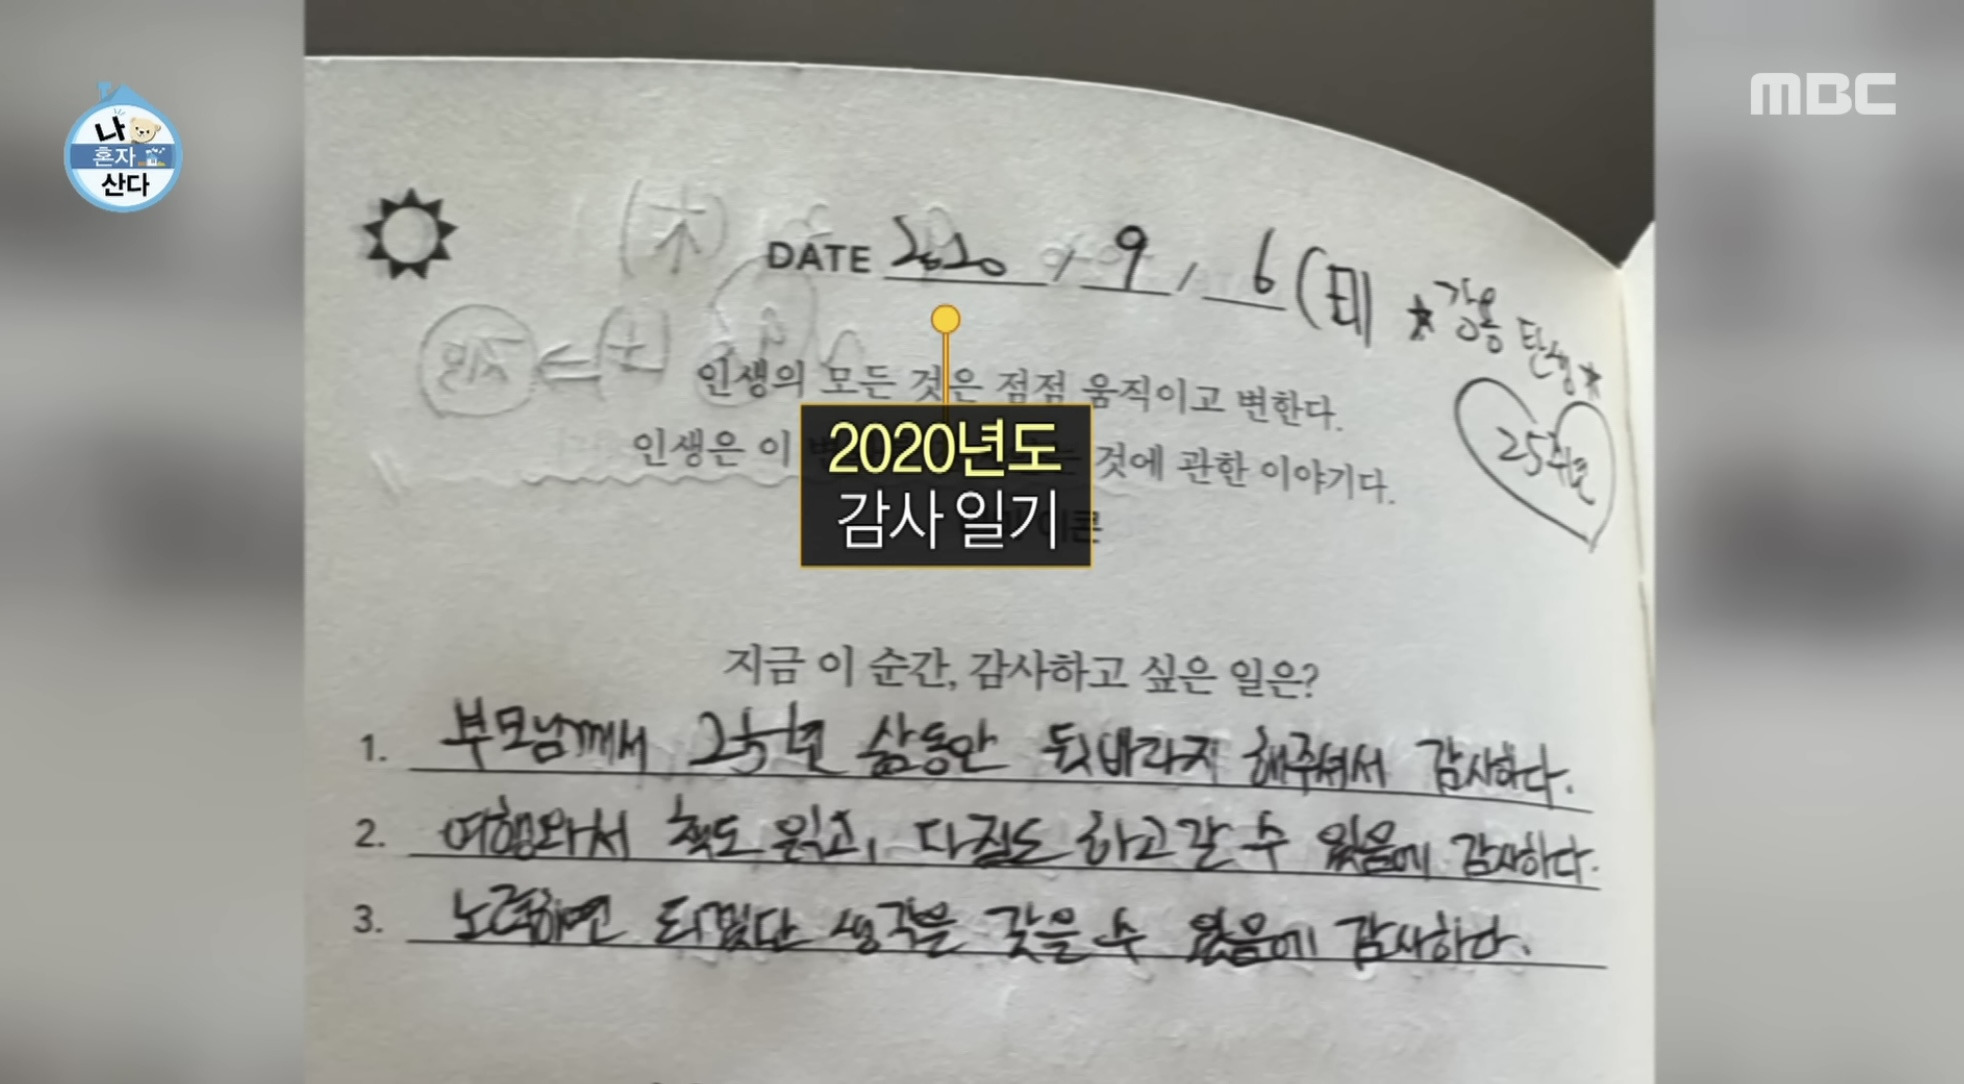 나
혼자
산다
MBC
DATE 2020 / 9 / 6 (日)
★강훈 탄생★
25주년
인생의 모든 것은 점점 움직이고 변한다.
인생은 이 것에 관한 이야기다.
2020년도
감사 일기
지금 이 순간, 감사하고 싶은 일은?
1. 부모님께서 25년 삶동안 뒷바라지 해주셔서 감사하다.
2. 여행와서 책도 읽고, 다짐도 하고 갈 수 있음에 감사하다.
3. 노력하면 되겠단 생각을 갖을 수 있음에 감사하다.